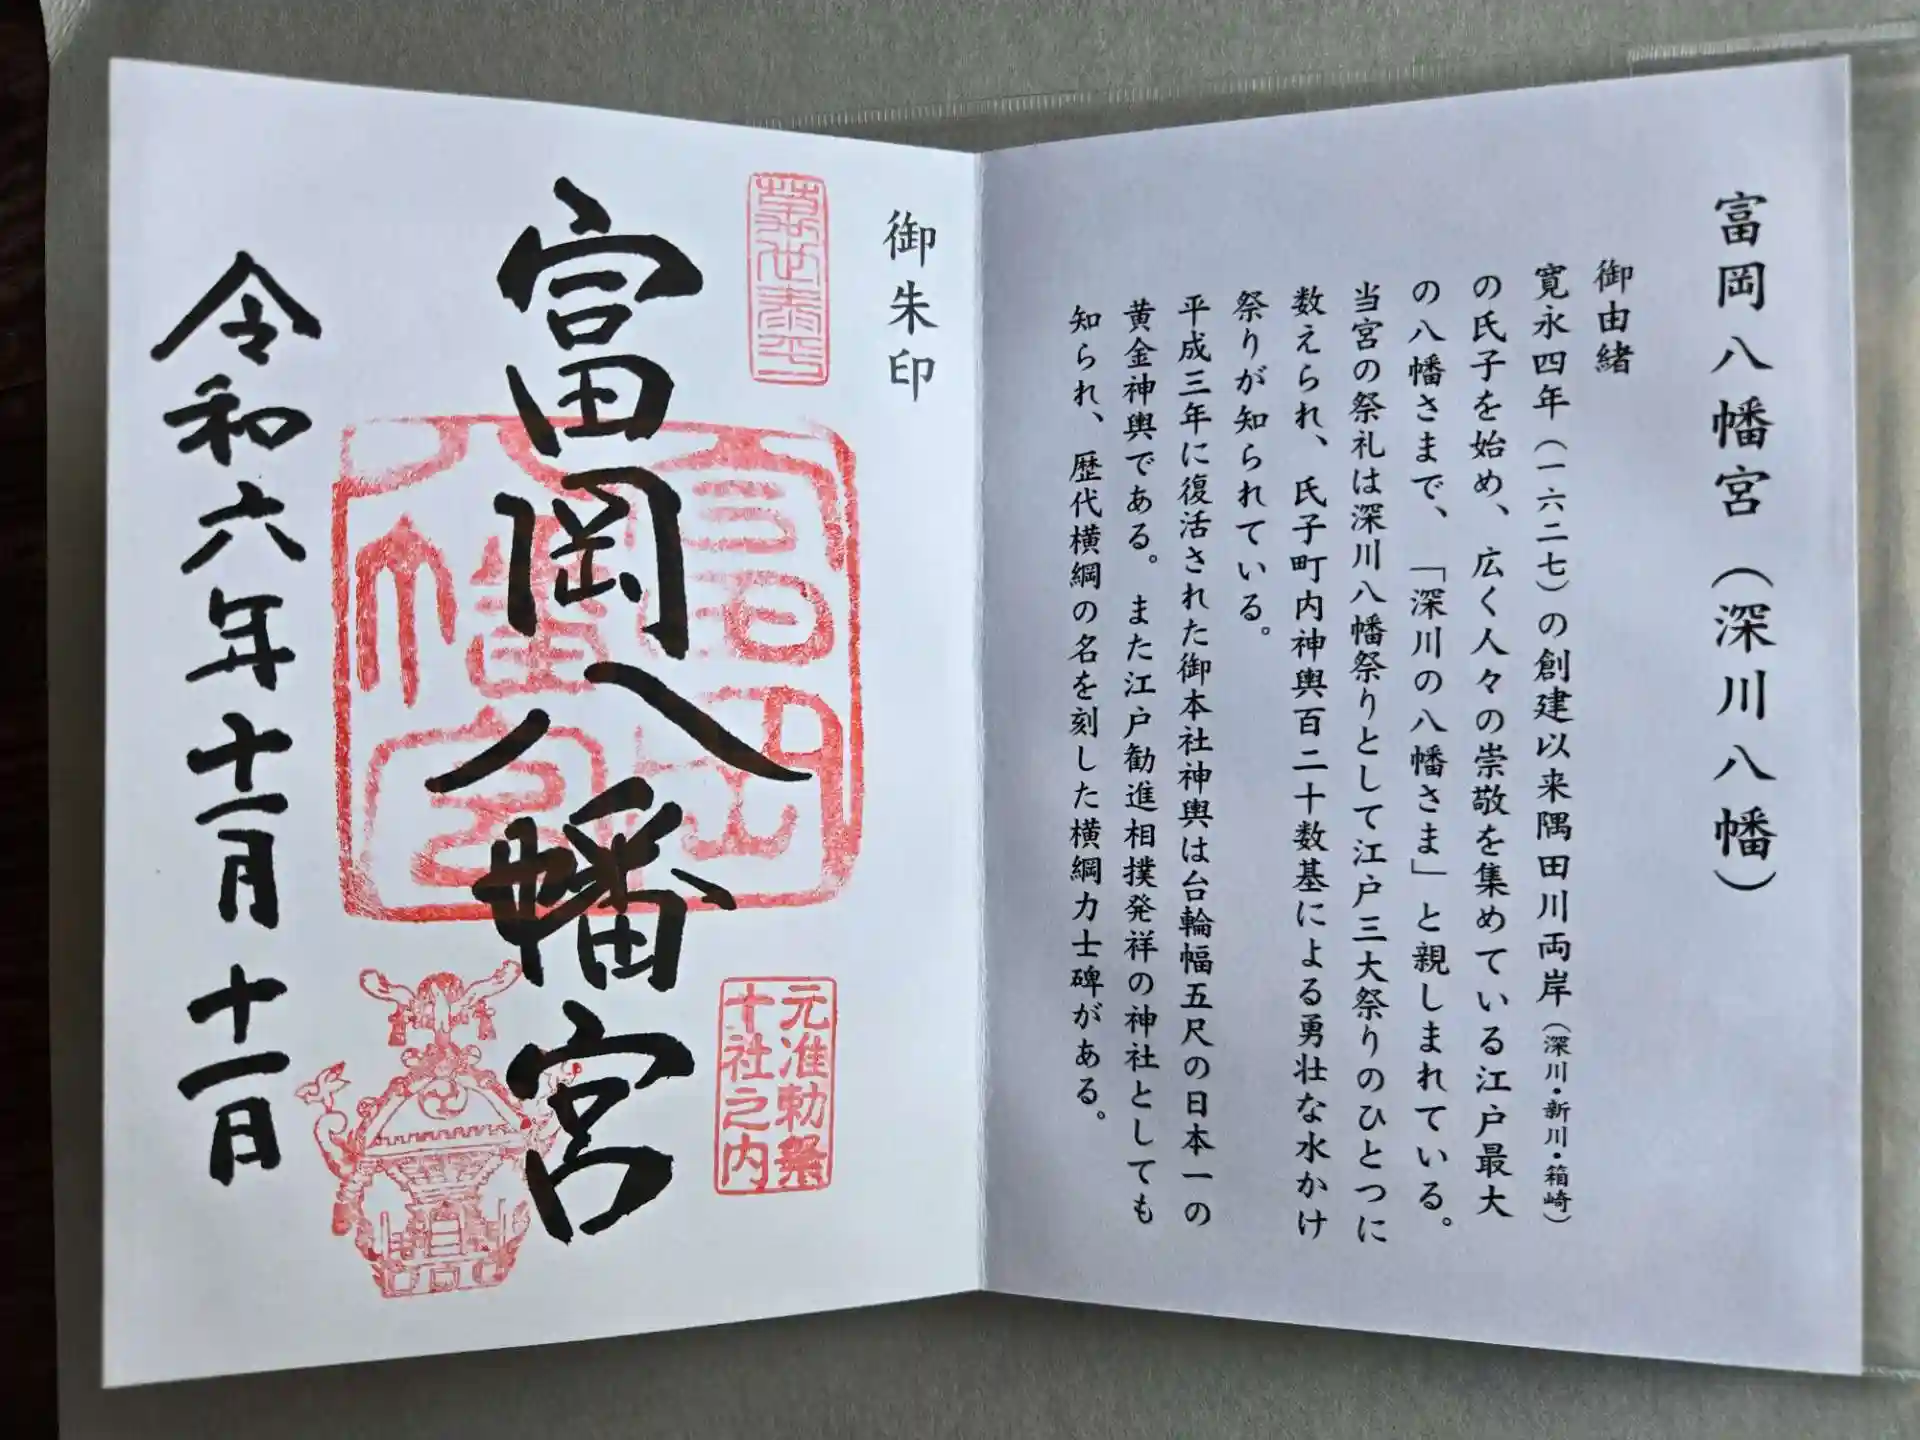 富岡八幡宮(深川八幡)
御由緒
寛永四年(一六二七)の創建以来隅田川両岸(深川・新川・箱崎)
の氏子を始め、広く人々の崇敬を集めている江戸最大
の八幡さまで、「深川の八幡さま」と親しまれている。
当宮の祭礼は深川八幡祭りとして江戸三大祭りのひとつに
数えられ、氏子町内神輿百二十数基による勇壮な水かけ
祭りが知られている。
平成三年に復活された御本社神輿は台輪幅五尺の日本一の
黄金神輿である。また江戸勧進相撲発祥の神社としても
知られ、歴代横綱の名を刻した横綱力士碑がある。
御朱印
元准勅祭
十社之内
富岡八幡宮
富岡八幡宮
令和六年十一月十一日